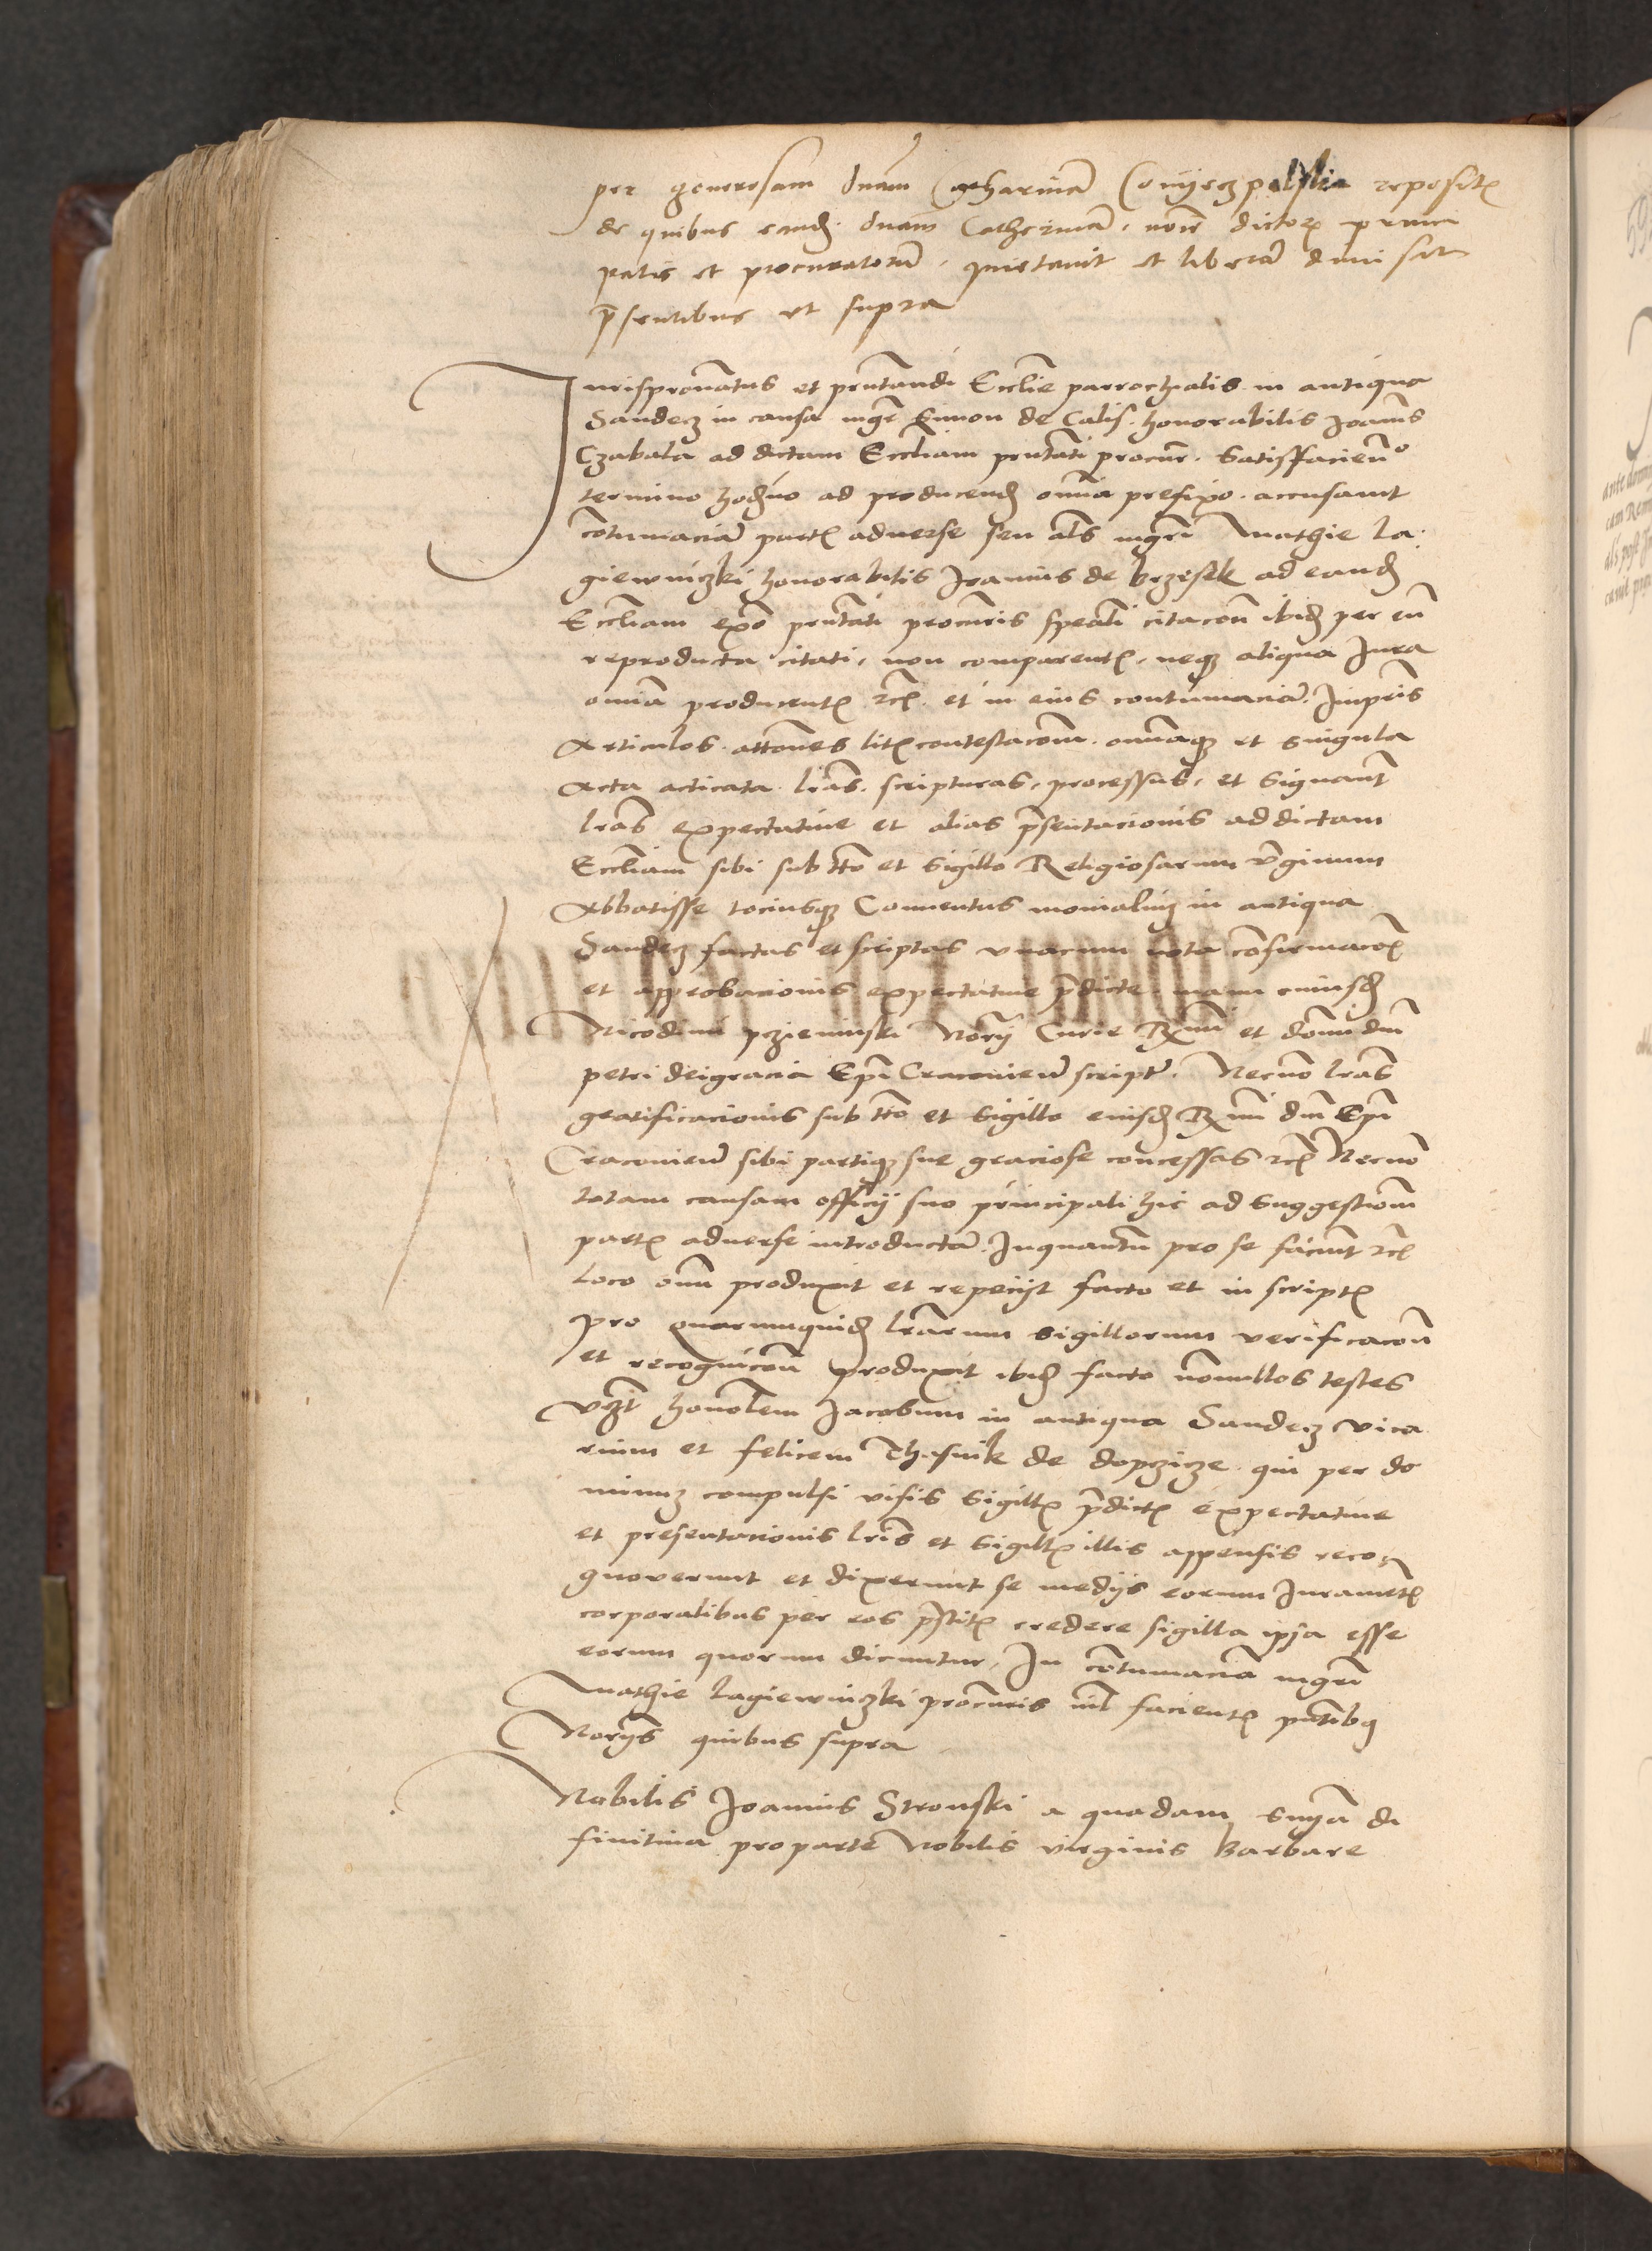 per generosam dnam Catharinā Conyeczpolska reposit(is)
de quibus eand. dnam Catherinā, noīe dictorꝫ princi
palis et procuratorū, quietavit et liberā dimisit
p̄sentibus ut supra
Jurispronatus et pn̄tandi Eccl̄ie parrochialis in antiqua
Sandecz in causa mgr̄ Simon de Calis. honorabilis Joannis
Czabala ad dictam Eccl̄iam pn̄tati procur̄. Satisfacien̄
termino hodierno ad producend om̄ia prefixo. accusavit
cōtumaciā part(is) adverse seu al̄s mgr̄i Mathie La
giewniczki honorabilis Joannis de brzesek ad eand
Eccl̄iam ex͠o pn̄tati procur̄is sp̄eali citacōn ibid per eū
reproducta citati, non comparent(is), neqꝫ aliqua Jura
om̄ia producent(is) rc̄. et in eius contumaciā. Inpr̄is
Articulos. attōnes lit(is)contestacōnem. om̄iaqꝫ et singula
Acta acticata. lr̄as. scripturas, processus, et signan̄t
lr̄as expectative et alias p̄sentacionis ad dictam
Eccl̄iam sibi sub tt̄o et sigillo Religiosarum v̄ginum
Abbatisse tociusqꝫ Conventus monialiū in antiqua
Sandecz factas et scriptas unacum nota cōfirmacōis
et approbacionis expectative p̄dicte. manu cuiusd
Nicodimi pczieninski Nor̄ij Curie Rx̄mi et domini dn̄i
petri dei gracia Epī Cracovien̄ script. Necnō lr̄as
gratificacionis sub tt̄o et sigillo eiusd Rx̄mi dn̄i Epī
Cracovien̄ sibi partiqꝫ sue graciose concessas rc̄ Necnō
totam causam officij suo principali hic ad suggestionem
part(is) adverse introductā. Inquantū pro se faciunt rc̄
loco om̄ū produxit et repecijt facto et in script(is)
Pro quarumquid lr̄arum sigillorum verificacōn
et recognicōn produxit ibid facto nōnullos testes
vz̄ honolem Jacobum in antiqua Sandecz vica
rium et felicem de dopczicze. qui per do
minū compulsi visis sigill(is) p̄dict(is) expectative
et presentacionis lr̄is et sigill(is) illis appensis recog
noverunt et dixerunt se medijs eorum Jurament(is)
corporalibus per eos p̄stit(is) credere sigilla ipsa esse
eorum quorum dicuntur, In cōtumaciā mgr̄i
Mathie Lagiewniczki procur̄is nil facient(is) pn̄tibꝫ
Norijs quibus supra
Nobilis Joannis Stronski a quadam sn̄ia di
finitiva pro parte Nobilis virginis Barbare